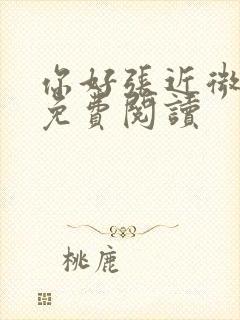 你好張近微
免費閱讀
桃鹿